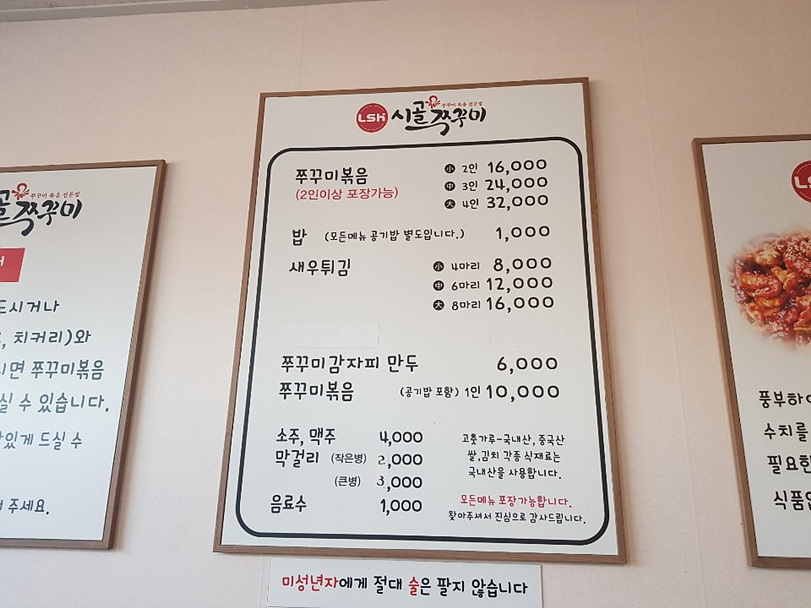 쭈꾸미 볶음 전문점
쭈꾸미
드시거나
, 치커리)와
시면 쭈꾸미볶음
실 수 있습니다.
맛있게 드실 수
주세요.
LSH 시골쭈꾸미
쭈꾸미 볶음 전문점
쭈꾸미볶음 小 2인 16,000
(2인이상 포장가능) 中 3인 24,000
大 4인 32,000
밥 (모든메뉴 공기밥 별도입니다.) 1,000
새우튀김 小 4마리 8,000
中 6마리 12,000
大 8마리 16,000
쭈꾸미감자피 만두 6,000
쭈꾸미볶음 (공기밥 포함) 1인 10,000
소주, 맥주 4,000
막걸리 (작은병) 2,000
(큰병) 3,000
음료수 1,000
고춧가루-국내산, 중국산
쌀,김치 각종 식재료는
국내산을 사용합니다.
모든메뉴 포장가능합니다.
찾아주셔서 진심으로 감사드립니다.
미성년자에게 절대 술은 팔지 않습니다
LS
풍부하
수치를
필요한
식품